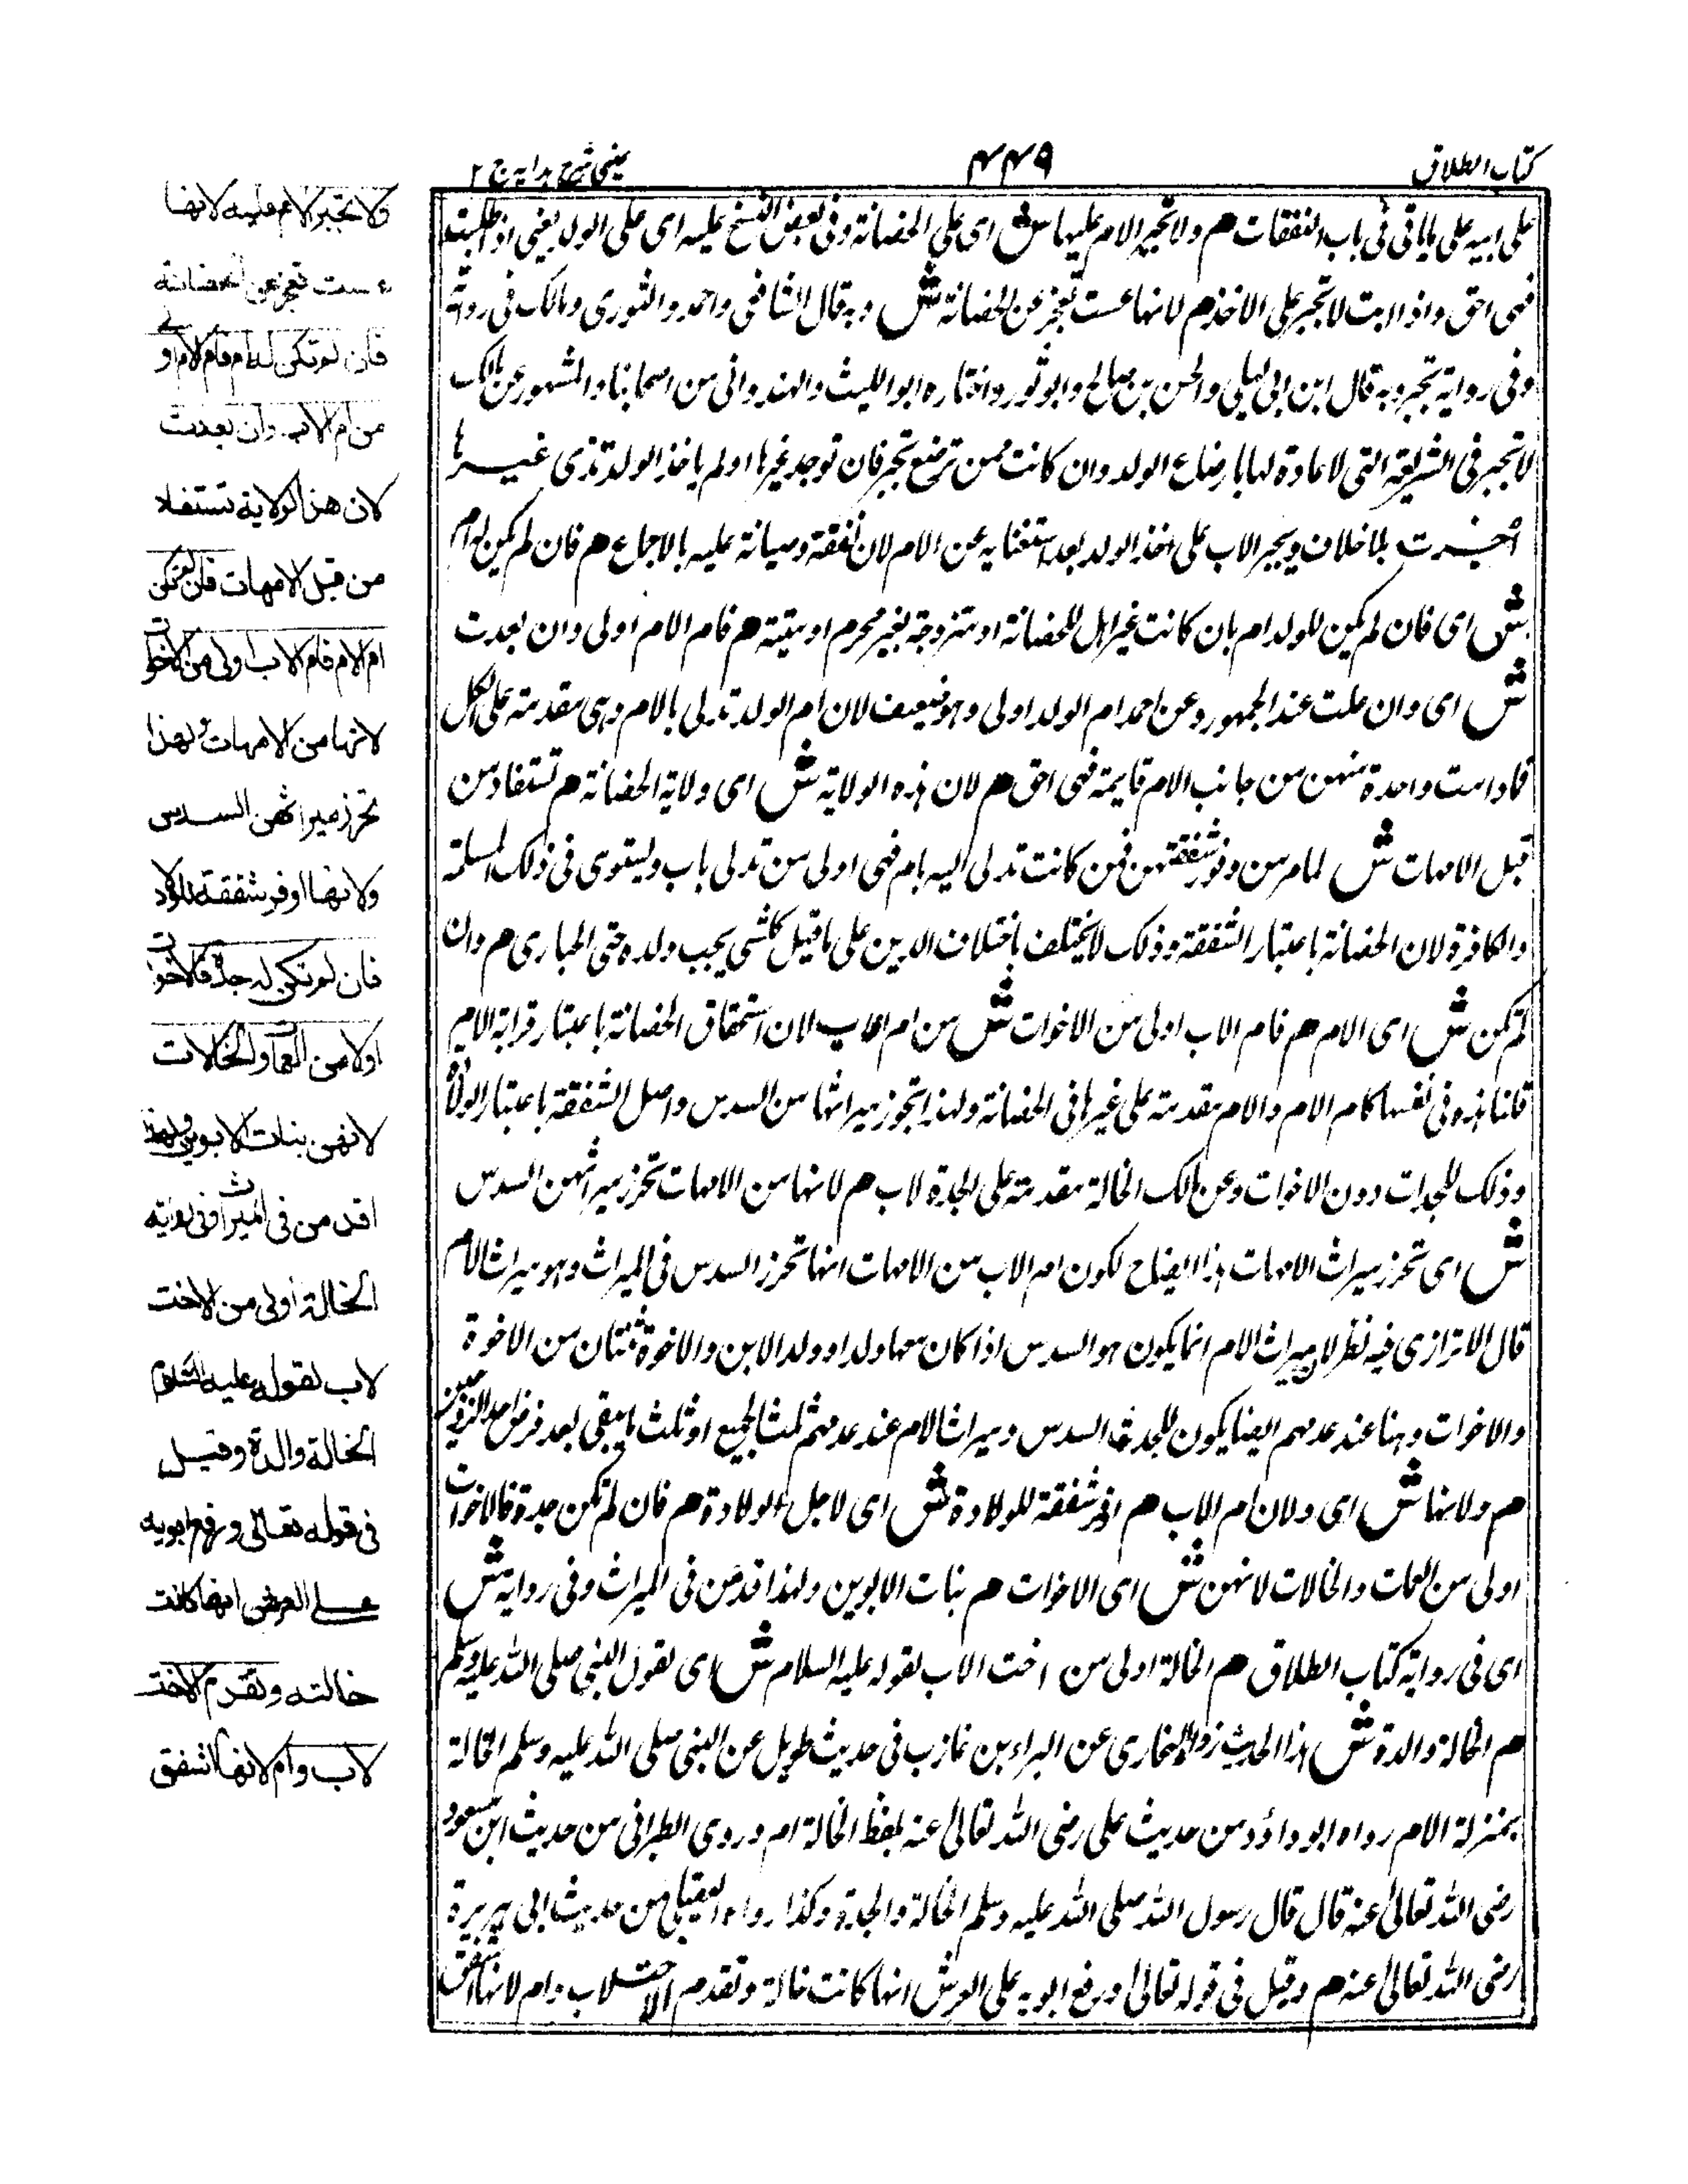 كتاب الطلاق
٤٤٩
عينى شرح هدايه ج ٢
على ابيه على ما ياتى فى باب النفقات هم ولا تجبر الام عليها ش اى على الحضانة وفى بعض النسخ عليه اى على الولد يعنى اذا طلبت
فهى احق واذا ابت لا تجبر على الاخذ هم لانها عست تعجز عن الحضانة ش وبه قال الشافعى واحمد والثورى ومالك فى رواية
وفى رواية تجبر وبه قال ابن ابى ليلى والحسن بن صالح وابو ثور واختاره ابو الليث والهندوانى من اصحابنا والمشهور عن مالك
لا تجبر فى الشريفة التى لا عادة لها بارضاع الولد وان كانت ممن ترضع تجبر فان توجد غيرها اولم ياخذ الولد ثدى غيرها
اجبرت بلا خلاف ويجبر الاب على اخذ الولد بعد استغنايه عن الام لان نفقته وصيانة عليه بالاجماع هم فان لم يكن له ام
ش اى فان لم يكن للولد ام بان كانت غير اهل للحضانة او متزوجة بغير محرم او ميتة هم فام الام اولى وان بعدت
ش اى وان علت عند الجمهور وعن احمد ام الولد اولى وهو ضعيف لان ام الولد تدلى بالام وهى مقدمة على الكل
فما دامت واحدة منهن من جانب الام قايمة فهى احق هم لان هذه الولاية ش اى ولاية الحضانة هم تستفاد من
قبل الامهات ش لما مر من وفور شفقتهن فمن كانت تدلى اليه بام فهى اولى من تدلى باب ويستوى فى ذلك المسلمة
والكافرة لان الحضانة باعتبار الشفقة وذلك لا يختلف باختلاف الدين على ما قيل كل شى يحب ولده حتى الحبارى هم وان
لم تكن ش اى الام هم فام الاب اولى من الاخوات ش من ام اواب لان استحقاق الحضانة باعتبار قرابة الام
قلنا هذه فى نفسها كام الام والام مقدمة على غيرها فى الحضانة ولهذا تحوز ميراثها من السدس واصل الشفقة باعتبار الولاد
وذلك للجدات دون الاخوات وعن مالك الخالة مقدمة على الجدة لاب هم لانها من الامهات تحرز ميراثهن السدس
ش اى تحرز ميراث الامهات هذا ايضاح لكون ام الاب من الامهات انها تحرز السدس فى الميراث وهو ميراث الام
قال الاترازى فيه نظر لان ميراث الام انما يكون هو السدس اذا كان معها ولد او ولد الابن والاخوة ثنتان من الاخوة
والاخوات وهنا عند عدمهم ايضا يكون للجدة السدس وميراث الام عند عدمهم ثلث الجميع او ثلث ما يبقى بعد فرض احد الزوجين
هم ولانها ش اى ولان ام الاب هم اوفر شفقة للولادة ش اى لاجل الولادة هم فان لم تكن جدة فالاخوات
اولى من العمات والخالات لانهن ش اى الاخوات هم بنات الابوين ولهذا قدمن فى الميراث وفى رواية ش
اى فى رواية كتاب الطلاق هم الخالة اولى من اخت الاب لقوله عليه السلام ش اى لقول النبى صلى الله عليه وسلم
هم الخالة والدة ش هذا الحديث رواه البخارى عن البراء بن عازب فى حديث طويل عن النبى صلى الله عليه وسلم الخالة
بمنزلة الام رواه ابو داؤد من حديث على رضى الله تعالى عنه بلفظ الخالة ام وروى الطبرانى من حديث ابن مسعود
رضى الله تعالى عنه قال قال رسول الله صلى الله عليه وسلم الخالة والجدة وكذا رواه العقيلى من حديث ابى هريرة
رضى الله تعالى عنه هم وقيل فى قوله تعالى ورفع ابويه على العرش انها كانت خالة وتقدم الاخت لاب وام لانها اشفق
ولا تجبر الام عليه لانها
عست تعجز عن الحضانة
فان لم تكن له ام فام الام او
من ام الاب وان بعدت
لان هذه الولاية تستفاد
من قبل الامهات فان لم تكن
ام الام فام الاب اولى من الاخوات
لانها من الامهات ولهذا
تحرز ميراثهن السدس
ولانها اوفر شفقة للاولاد
فان لم تكن له جدة فالاخوات
اولا من العمات والخالات
لانهن بنات الابوين ولهذا
قدمن فى الميراث وفى رواية
الخالة اولى من الاخت
لاب لقوله عليه السلام
الخالة والدة وقيل
فى قوله تعالى ورفع ابويه
على العرش انها كانت
خالته وتقدم الاخت
لاب وام لانها اشفق